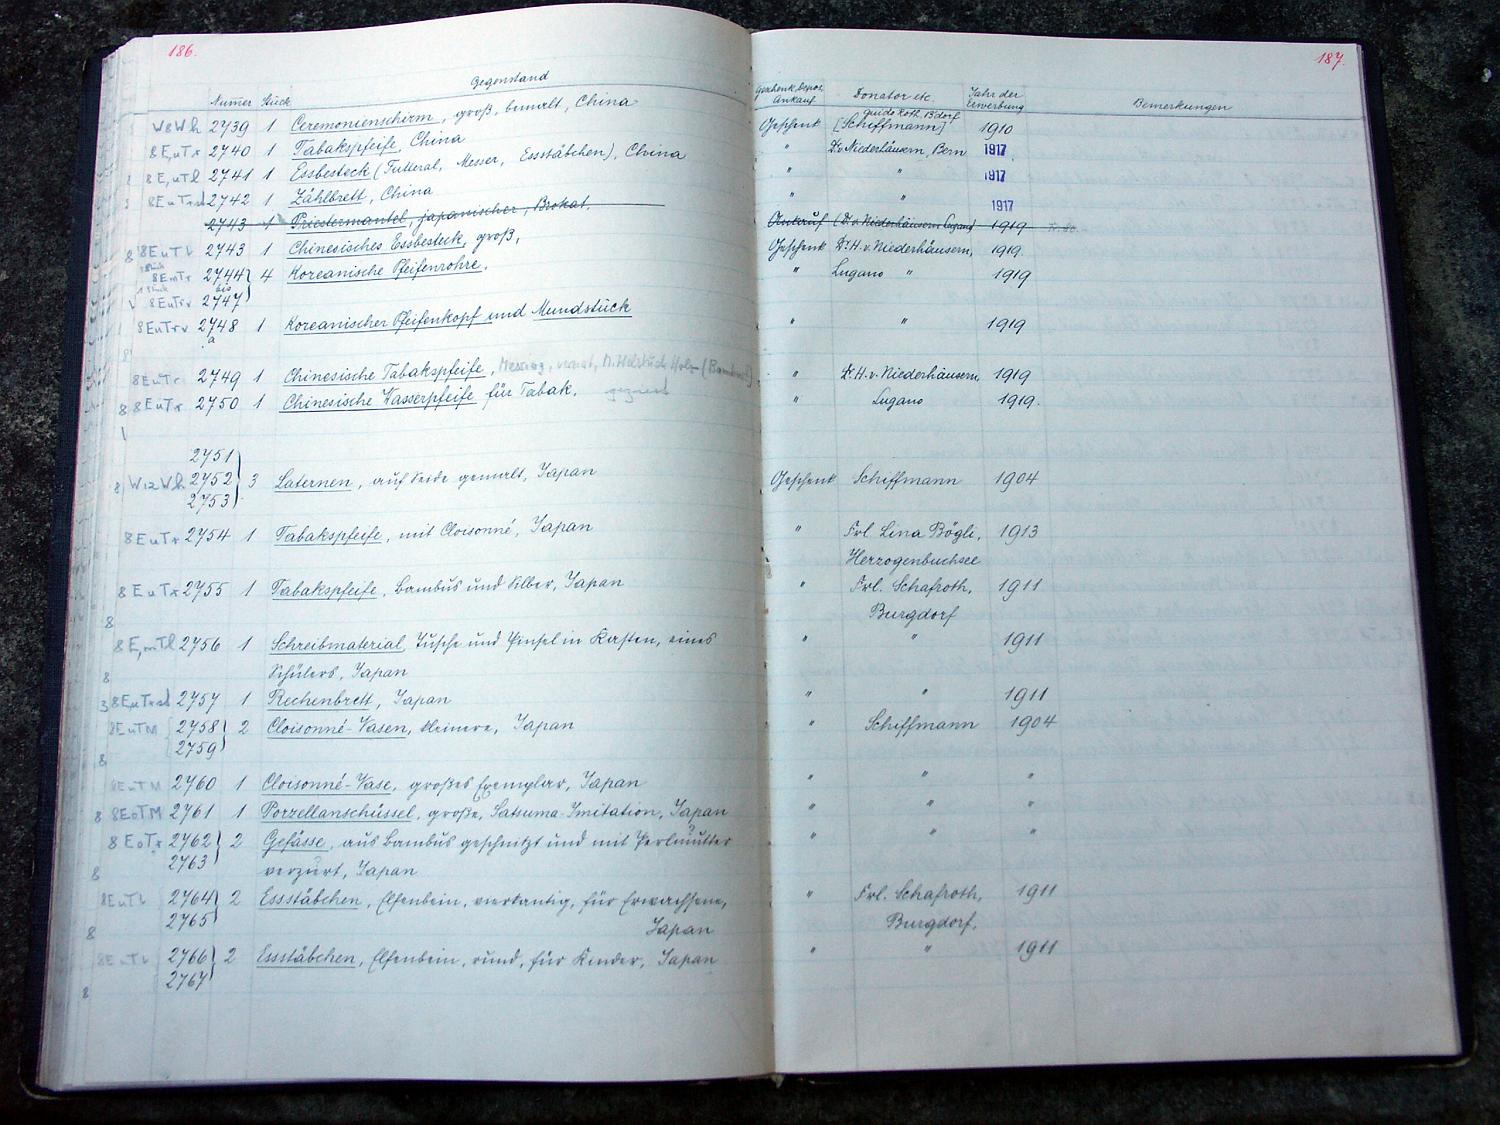 186.
187.
Numer Stück Gegenstand Geschenk, depos. Ankauf Donator etc. Jahr der Erwerbung Bemerkungen
Guido Roth, Bdorf
W8Wh 2739 1 Ceremonienschirm, groß, bemalt, China Geschenk [Schiffmann] 1910
8EuTr 2740 1 Tabakspfeife, China " Dr. v. Niederhäusern, Bern 1917
8EuTl 2741 1 Essbesteck (Futteral, Messer, Essstäbchen), China " " 1917
2742 1 Zählbrett, China " " 1917
2743 1 Priestermantel, japanischer, Brokat. Ankauf (Dr. v. Niederhäusern Lugano) 1919
8EuTl 2743 1 Chinesisches Essbesteck, groß, Geschenk Dr. H. v. Niederhäusern, 1919.
8EuTr 2744 4 Koreanische Pfeifenrohre. " Lugano " 1919
bis
8EuTr 2747
8EuTrv 2748 1 Koreanischer Pfeifenkopf und Mundstück " " 1919
a
8EuTr 2749 1 Chinesische Tabakspfeife, Messing, (Bambus) " Dr. H. v. Niederhäusern, 1919
8EuTr 2750 1 Chinesische Wasserpfeife für Tabak. " Lugano 1919.
2751
W12Wh 2752 3 Laternen, auf Seide gemalt, Japan Geschenk Schiffmann 1904
2753
8EuTr 2754 1 Tabakspfeife, mit Cloisonné, Japan " Frl. Lina Bögli, 1913
Herzogenbuchsee
8EuTr 2755 1 Tabakspfeife, Bambus und Silber, Japan " Frl. Schafroth, 1911
Burgdorf
2756 1 Schreibmaterial, Tusche und Pinsel in Kasten, eines " " 1911
Schülers, Japan
2757 1 Rechenbrett, Japan " " 1911
8EuTM 2758 2 Cloisonné-Vasen, kleinere, Japan " Schiffmann 1904
2759
8EuTM 2760 1 Cloisonné-Vase, großes Exemplar, Japan " " "
8EoTM 2761 1 Porzellanschüssel, große, Satsuma-Imitation, Japan " " "
8EoTr 2762 2 Gefässe, aus Bambus geschnitzt und mit Perlmutter " " "
2763 verziert, Japan
8EuTl 2764 2 Essstäbchen, Elfenbein, vierkantig, für Erwachsene, " Frl. Schafroth, 1911
2765 Japan Burgdorf.
8EuTl 2766 2 Essstäbchen, Elfenbein, rund, für Kinder, Japan " " 1911
2767